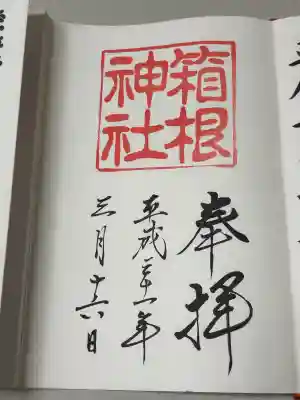 箱根
神社
奉拝
平成二十一年
三月十六日